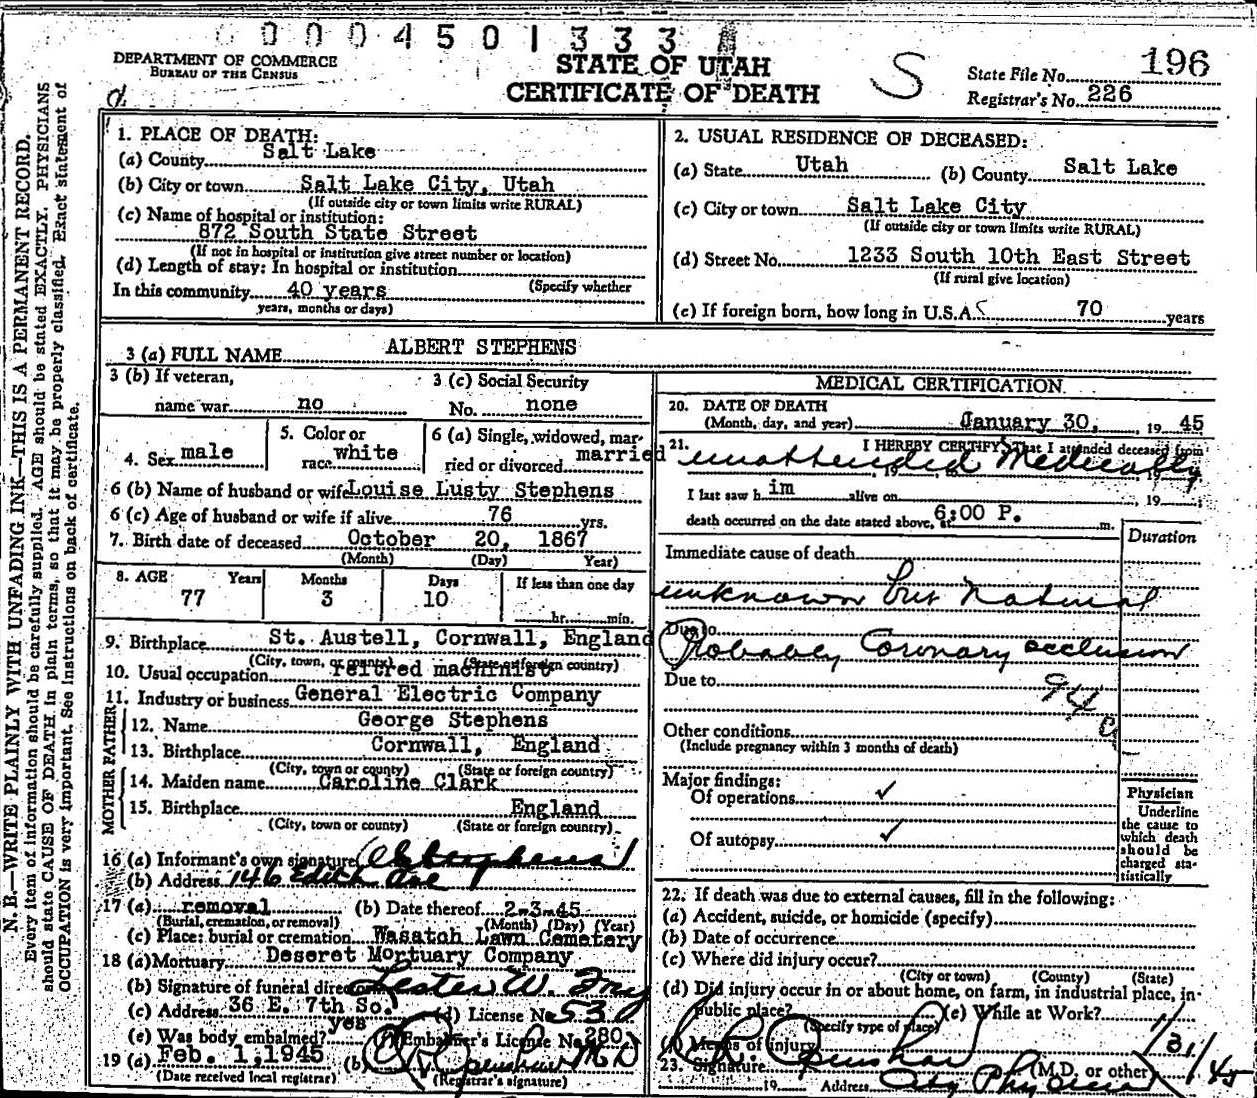 0004501333
DEPARTMENT OF COMMERCE
BUREAU OF THE CENSUS
STATE OF UTAH
CERTIFICATE OF DEATH
S
State File No. 196
Registrar's No. 226
N. B.—WRITE PLAINLY WITH UNFADING INK—THIS IS A PERMANENT RECORD.
Every item of information should be carefully supplied. AGE should be stated EXACTLY. PHYSICIANS
should state CAUSE OF DEATH in plain terms, so that it may be properly classified. Exact statement of
OCCUPATION is very important. See instructions on back of certificate.
1. PLACE OF DEATH:
(a) County Salt Lake
(b) City or town Salt Lake City, Utah
(If outside city or town limits write RURAL)
(c) Name of hospital or institution:
872 South State Street
(If not in hospital or institution give street number or location)
(d) Length of stay: In hospital or institution
(Specify whether
In this community 40 years
years, months or days)
2. USUAL RESIDENCE OF DECEASED:
(a) State Utah (b) County Salt Lake
(c) City or town Salt Lake City
(If outside city or town limits write RURAL)
(d) Street No. 1233 South 10th East Street
(If rural give location)
(e) If foreign born, how long in U.S.A. 70 years
3 (a) FULL NAME ALBERT STEPHENS
3 (b) If veteran,
name war no
3 (c) Social Security
No. none
4. Sex male
5. Color or
race white
6 (a) Single, widowed, mar-
ried or divorced married
6 (b) Name of husband or wife Louise Lusty Stephens
6 (c) Age of husband or wife if alive 76 yrs.
7. Birth date of deceased October 20, 1867
(Month) (Day) Year)
8. AGE Years Months Days If less than one day
77 3 10 hr. min.
9. Birthplace St. Austell, Cornwall, England
(City, town, or county) (State or foreign country)
10. Usual occupation retired machinist
11. Industry or business General Electric Company
FATHER
12. Name George Stephens
13. Birthplace Cornwall, England
(City, town or county) (State or foreign country)
MOTHER
14. Maiden name Caroline Clark
15. Birthplace England
(City, town or county) (State or foreign country)
16 (a) Informant's own signature Stephens
(b) Address 146 Edith Ave
17 (a) removal (b) Date thereof 2-3-45
(Burial, cremation, or removal) (Month) (Day) (Year)
(c) Place: burial or cremation Wasatch Lawn Cemetery
18 (a) Mortuary Deseret Mortuary Company
(b) Signature of funeral director Lester W. Fry
(c) Address 36 E. 7th So. (d) License No. 530
(e) Was body embalmed? yes (f) Embalmer's License No. 280
19 (a) Feb. 1, 1945 (b) Openshaw M D
(Date received local registrar) (Registrar's signature)
MEDICAL CERTIFICATION
20. DATE OF DEATH
(Month, day, and year) January 30, 19 45
21. I HEREBY CERTIFY That I attended deceased from
unattended Medically
I last saw h im alive on , 19
death occurred on the date stated above, at 6:00 P. m.
Duration
Immediate cause of death
unknown but Natural
Due to
Probably Coronary occlusion
Due to
94
Other conditions
(Include pregnancy within 3 months of death)
Major findings:
Of operations ✓
Of autopsy ✓
Physician
Underline
the cause to
which death
should be
charged sta-
tistically
22. If death was due to external causes, fill in the following:
(a) Accident, suicide, or homicide (specify)
(b) Date of occurrence
(c) Where did injury occur?
(City or town) (County) (State)
(d) Did injury occur in or about home, on farm, in industrial place, in
public place? (e) While at Work?
(Specify type of place)
(f) Means of injury
23. Signature Openshaw (M.D. or other) 1/31/45
19 Address City Physician